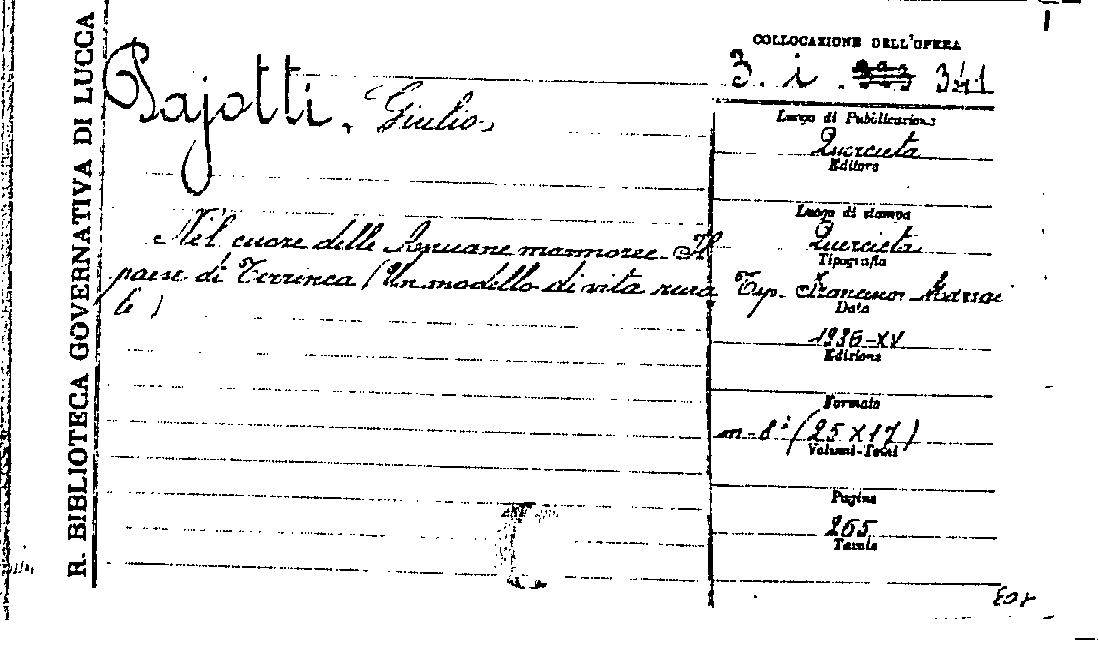 R. BIBLIOTECA GOVERNATIVA DI LUCCA
Pajotti, Giulio
Nel cuore delle Apuane marmoree. Il
paese di Terrinca (Un modello di vita rura
le)
COLLOCAZIONE DELL'OPERA
3. i . 341
Luogo di Pubblicazione
Querceta
Editore
Luogo di stampa
Querceta
Tipografia
Tip. Francesco
Data
1936-XV
Edizione
Formato
in-8° (25X17)
Volumi-Tomi
Pagine
265
Tavole